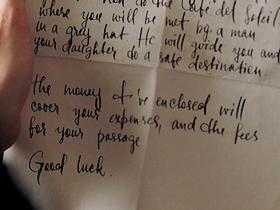 do the Café del Soleil
where you will be met by a man
in a grey hat He will guide you and
your daughter do a safe destination.
the money I've enclosed will
cover your expenses, and the fees
for your passage
Good luck.